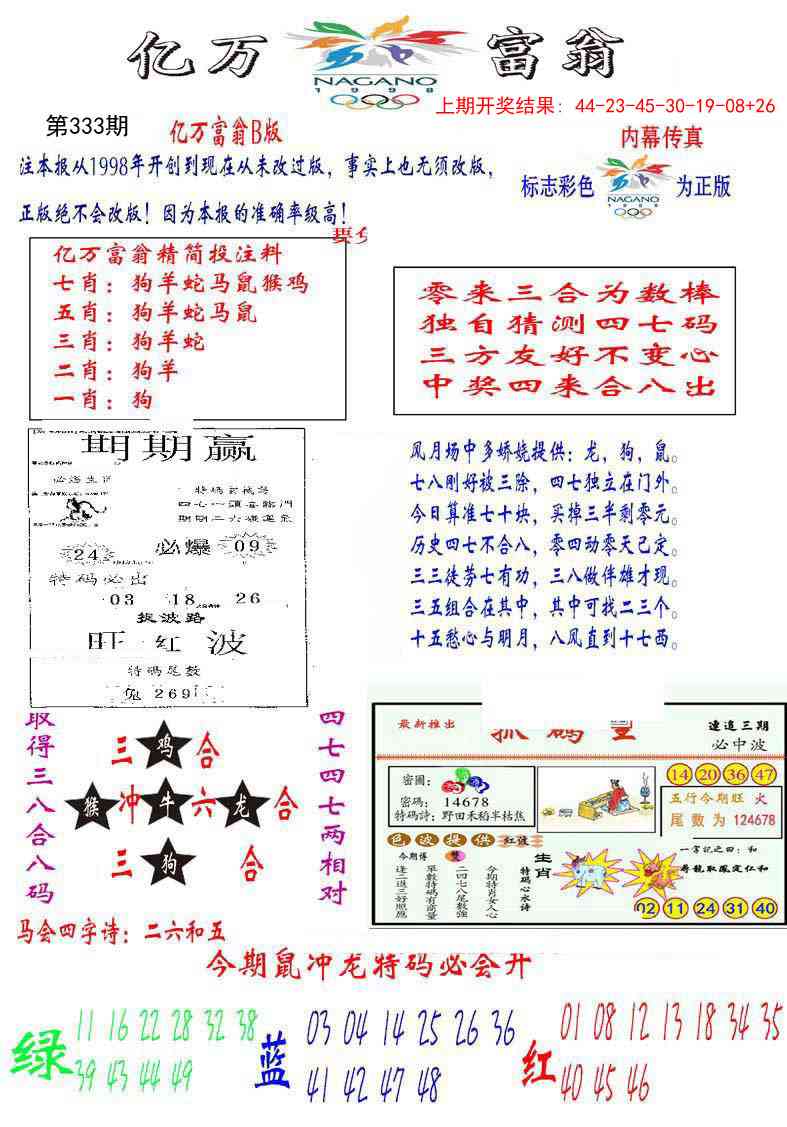 亿万富翁
NAGANO
1998
上期开奖结果：44-23-45-30-19-08+26
第333期
亿万富翁B版
内幕传真
注本报从1998年开创到现在从未改过版，事实上也无须改版，
正版绝不会改版！因为本报的准确率级高！
标志彩色
NAGANO
1998
为正版
亿万富翁精简投注料
七肖：狗羊蛇马鼠猴鸡
五肖：狗羊蛇马鼠
三肖：狗羊蛇
二肖：狗羊
一肖：狗
零来三合为数棒
独自猜测四七码
三方友好不变心
中奖四来合八出
期期赢
必爆
24
09
特码必出
03 18 26
捉波路
旺红波
特码尾数
兔269
风月场中多娇娆提供：龙，狗，鼠。
七八刚好被三除，四七独立在门外。
今日算准七十块，买掉三半剩零元。
历史四七不合八，零四动零天已定。
三三徒劳七有功，三八做伴雄才现。
三五组合在其中，其中可找二三个。
十五愁心与明月，八风直到十七西。
取得三八合八码
三鸡合
猴冲牛六龙合
三狗合
四七四七两相对
最新推出
连追三期
必中波
14 20 36 47
密圖：
密碼：14678
特碼詩：野田禾稻半枯焦
五行今期旺 火
尾数为 124678
色波提供 红波
今期博
逢二進三好照應
單數特碼有商量
二四七八尾數強
今期特肖女人心
特碼心水诗
生肖
一字記之曰：和
尋龍取鳳定仁和
02 11 24 31 40
马会四字诗：二六和五
今期鼠冲龙特码必会开
绿
11 16 22 28 32 38
39 43 44 49
蓝
03 04 14 25 26 36
41 42 47 48
红
01 08 12 13 18 34 35
40 45 46